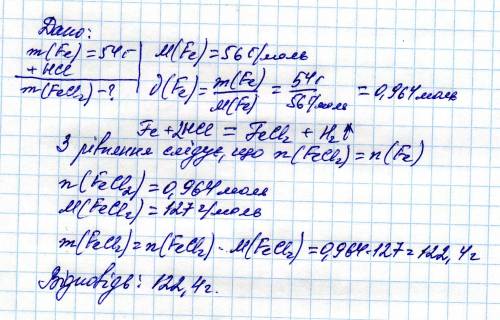 Дано:
m(Fe) = 54г
M(Fe) = 56 г/моль
+ HCl
m(FeCl₂) - ?
ϑ(Fe) = m(Fe)/M(Fe) = 54г/56г/моль = 0,964 моль
Fe + 2HCl = FeCl₂ + H₂↑
З рівняння слідує, що n(FeCl₂) = n(Fe)
n(FeCl₂) = 0,964 моль
M(FeCl₂) = 127 г/моль
m(FeCl₂) = n(FeCl₂) · M(FeCl₂) = 0,964·127 = 122,4г
Відповідь: 122,4г.